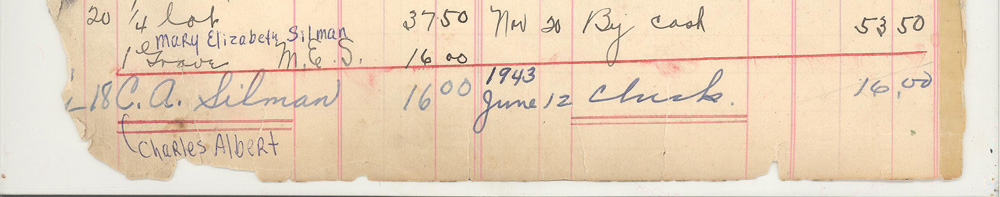 20 1/4 lot 37 50 Nov 20 By cash 53 50
Mary Elizabeth Silman
1 Grave M.E.S. 16 00
1943
18 C.A. Silman 16 00 June 12 Check. 16,00
(Charles Albert